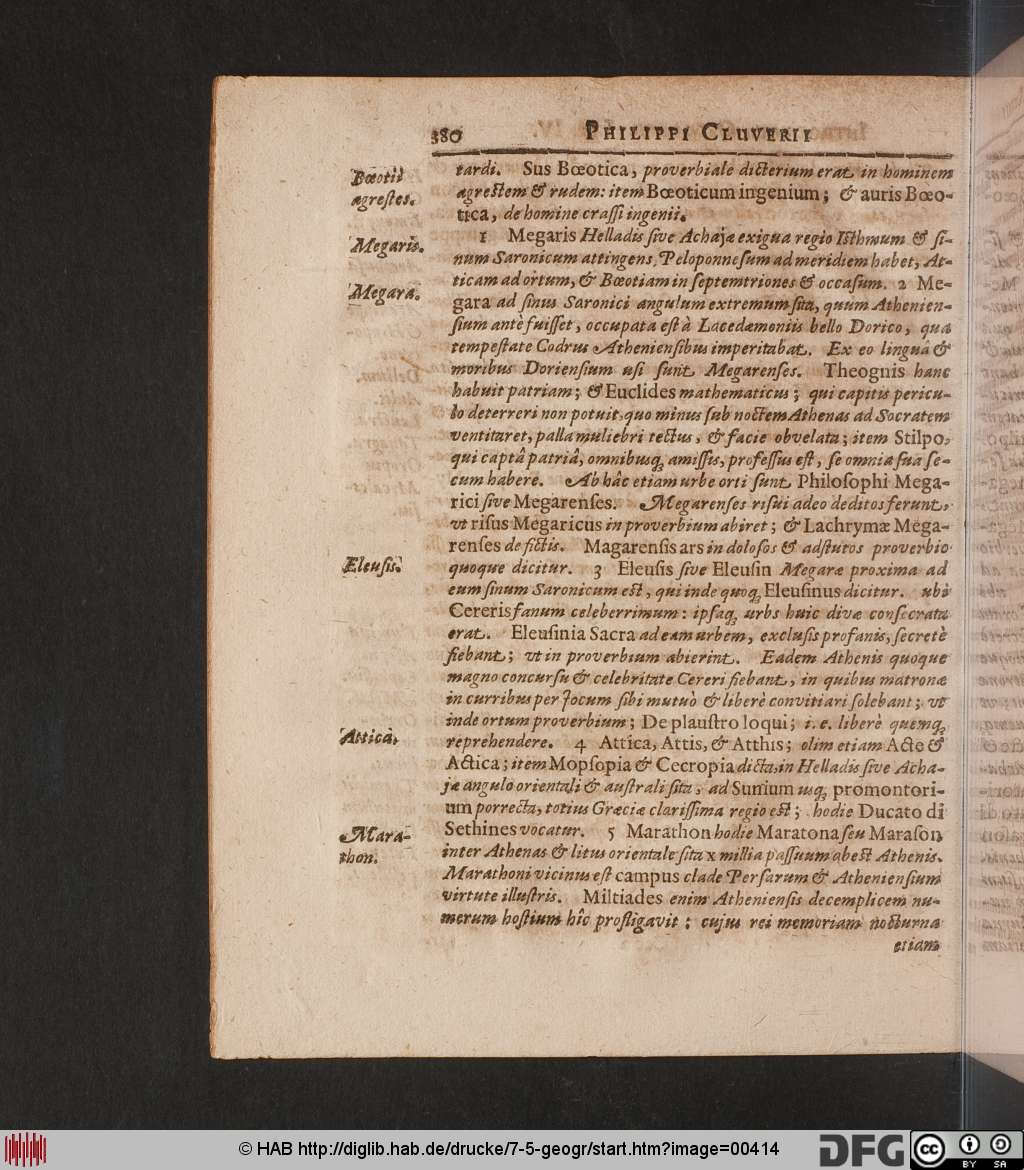 380 PHILIPPI CLUVERII
tardi. Sus Bœotica, proverbiale dicterium erat in hominem
agrestem & rudem: item Bœoticum ingenium; & auris Bœo-
tica, de homine crassi ingenii.
1 Megaris Helladis sive Achajæ exigua regio Isthmum & si-
num Saronicum attingens, Peloponnesum ad meridiem habet, At-
ticam ad ortum, & Bœotiam in septemtriones & occasum. 2 Me-
gara ad sinus Saronici angulum extremum sita, quum Athenien-
sium antè fuisset, occupata est à Lacedæmoniis bello Dorico, qua
tempestate Codrus Atheniensibus imperitabat. Ex eo linguâ &
moribus Doriensium usi sunt Megarenses. Theognis hanc
habuit patriam; & Euclides mathematicus; qui capitis pericu-
lo deterreri non potuit, quo minus sub noctem Athenas ad Socratem
ventitaret, palla muliebri tectus, & facie obvelata; item Stilpo,
qui captâ patriâ, omnibusq; amissis, professus est, se omnia sua se-
cum habere. Ab hâc etiam urbe orti sunt Philosophi Mega-
rici sive Megarenses. Megarenses risui adeo deditos ferunt,
vt risus Megaricus in proverbium abiret; & Lachrymæ Mega-
renses de fictis. Magarensis ars in dolosos & adstutos proverbio
quoque dicitur. 3 Eleusis sive Eleusin Megaræ proxima ad
eum sinum Saronicum est, qui inde quoq; Eleusinus dicitur. ubi
Cereris fanum celeberrimum: ipsaq; urbs huic divæ consecrata
erat. Eleusinia Sacra ad eam urbem, exclusis profanis, secretè
fiebant; vt in proverbium abierint. Eadem Athenis quoque
magno concursu & celebritate Cereri fiebant, in quibus matronæ
in curribus per Jocum sibi mutuò & liberè convitiari solebant; vt
inde ortum proverbium; De plaustro loqui; i. e. liberè quemq;
reprehendere. 4 Attica, Attis, & Atthis; olim etiam Acte &
Actica; item Mopsopia & Cecropia dicta, in Helladis sive Acha-
jæ angulo orientali & australi sita, ad Sunium usq; promontori-
um porrecta, totius Græciæ clarissima regio est; hodie Ducato di
Sethines vocatur. 5 Marathon hodie Maratona seu Marason
inter Athenas & litus orientale sita x millia passuum abest Athenis.
Marathoni vicinus est campus clade Persarum & Atheniensium
virtute illustris. Miltiades enim Atheniensis decemplicem nu-
merum hostium hîc profligavit: cujus rei memoriam nocturna
etiam
Bœotii
agrestes.
Megaris.
Megara.
Eleusis.
Attica.
Mara-
thon.
© HAB http://diglib.hab.de/drucke/7-5-geogr/start.htm?image=00414
DFG
cc BY SA